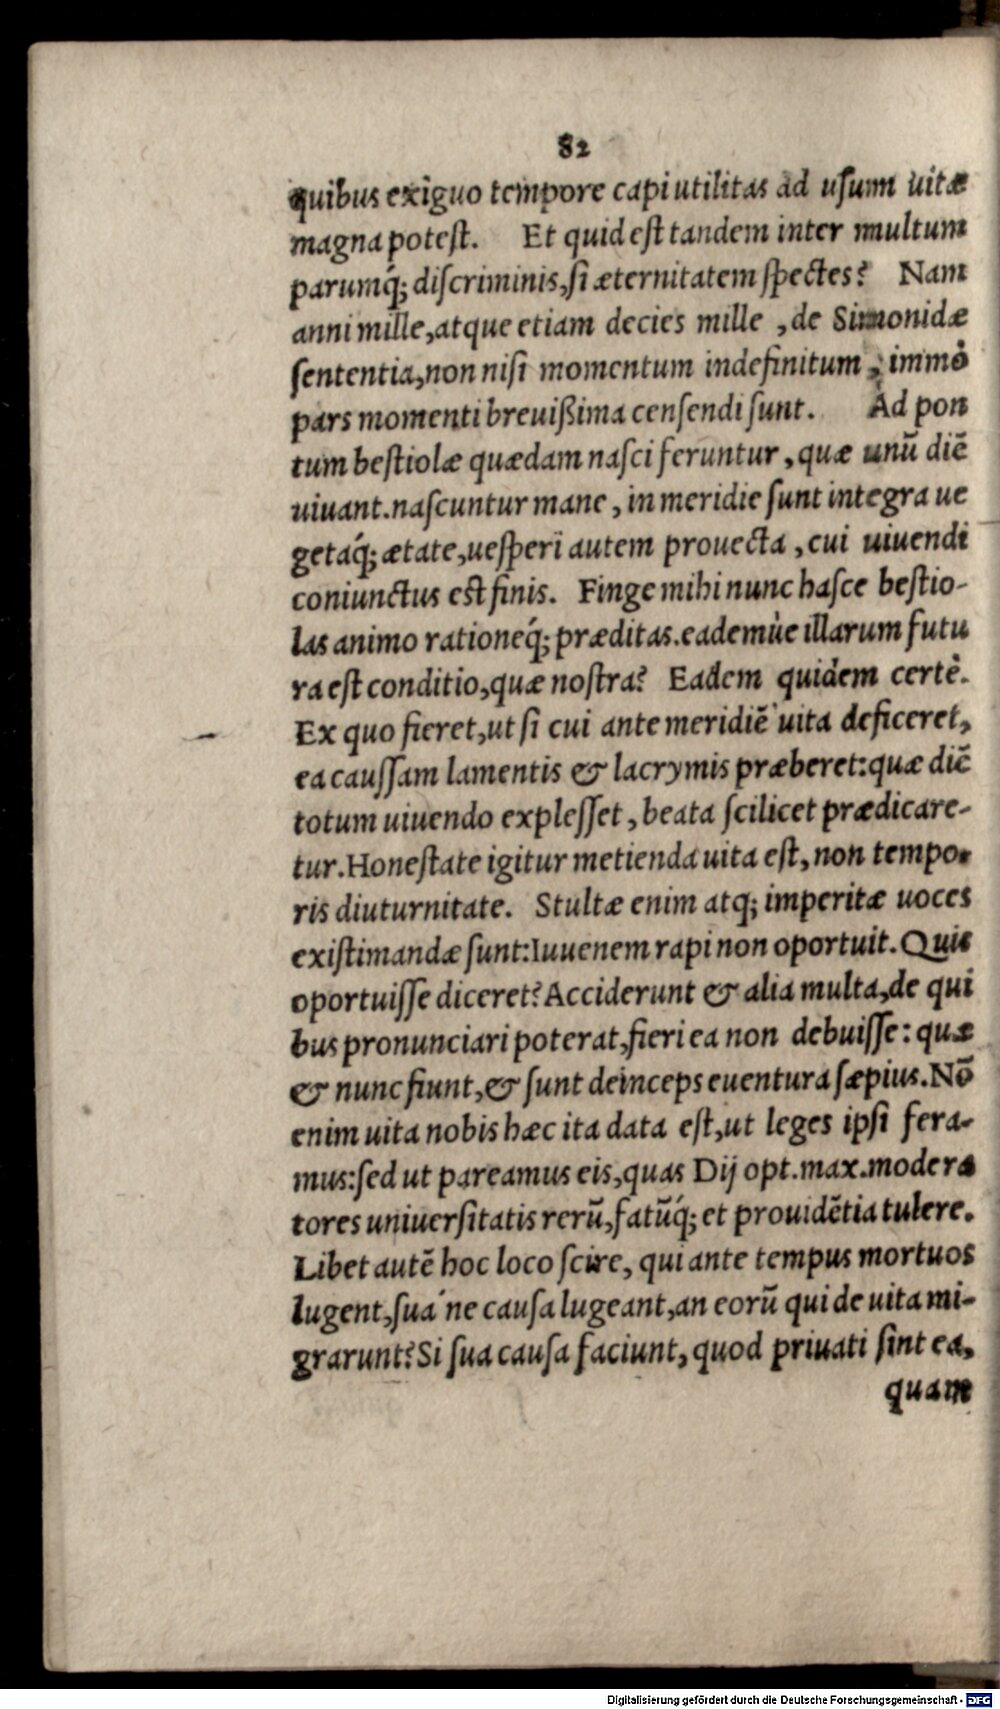 82
quibus exiguo tempore capi utilitas ad usum uitæ
magna potest. Et quid est tandem inter multum
parumq́; discriminis, si æternitatem spectes? Nam
anni mille, atque etiam decies mille , de Simonidæ
sententia, non nisi momentum indefinitum , immò
pars momenti breuißima censendi sunt. Ad pon
tum bestiolæ quædam nasci feruntur , quæ unū diē
uiuant. nascuntur mane , in meridie sunt integra ue
getaq́; ætate, uesperi autem prouecta , cui uiuendi
coniunctus est finis. Finge mihi nunc hasce bestio-
las animo rationeq́; præditas. eademùe illarum futu
ra est conditio, quæ nostra? Eadem quidem certè.
Ex quo fieret, ut si cui ante meridiē uita deficeret,
ea caussam lamentis & lacrymis præberet: quæ diē
totum uiuendo explesset , beata scilicet prædicare-
tur. Honestate igitur metienda uita est, non tempo-
ris diuturnitate. Stultæ enim atq; imperitæ uoces
existimandæ sunt: Iuuenem rapi non oportuit. Quis
oportuisse diceret? Acciderunt & alia multa, de qui
bus pronunciari poterat, fieri ea non debuisse: quæ
& nunc fiunt, & sunt deinceps euentura sæpius. Nō
enim uita nobis hæc ita data est, ut leges ipsi fera-
mus: sed ut pareamus eis, quas Dij opt. max. modera
tores uniuersitatis rerū, fatūq́; et prouidētia tulere.
Libet autē hoc loco scire, qui ante tempus mortuos
lugent, sua´ne causa lugeant, an eorū qui de uita mi-
grarunt? Si sua causa faciunt, quod priuati sint ea,
quam
Digitalisierung gefördert durch die Deutsche Forschungsgemeinschaft - DFG